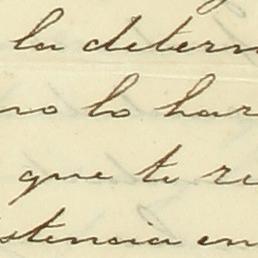 la determ
no lo har
que te re
stencia en